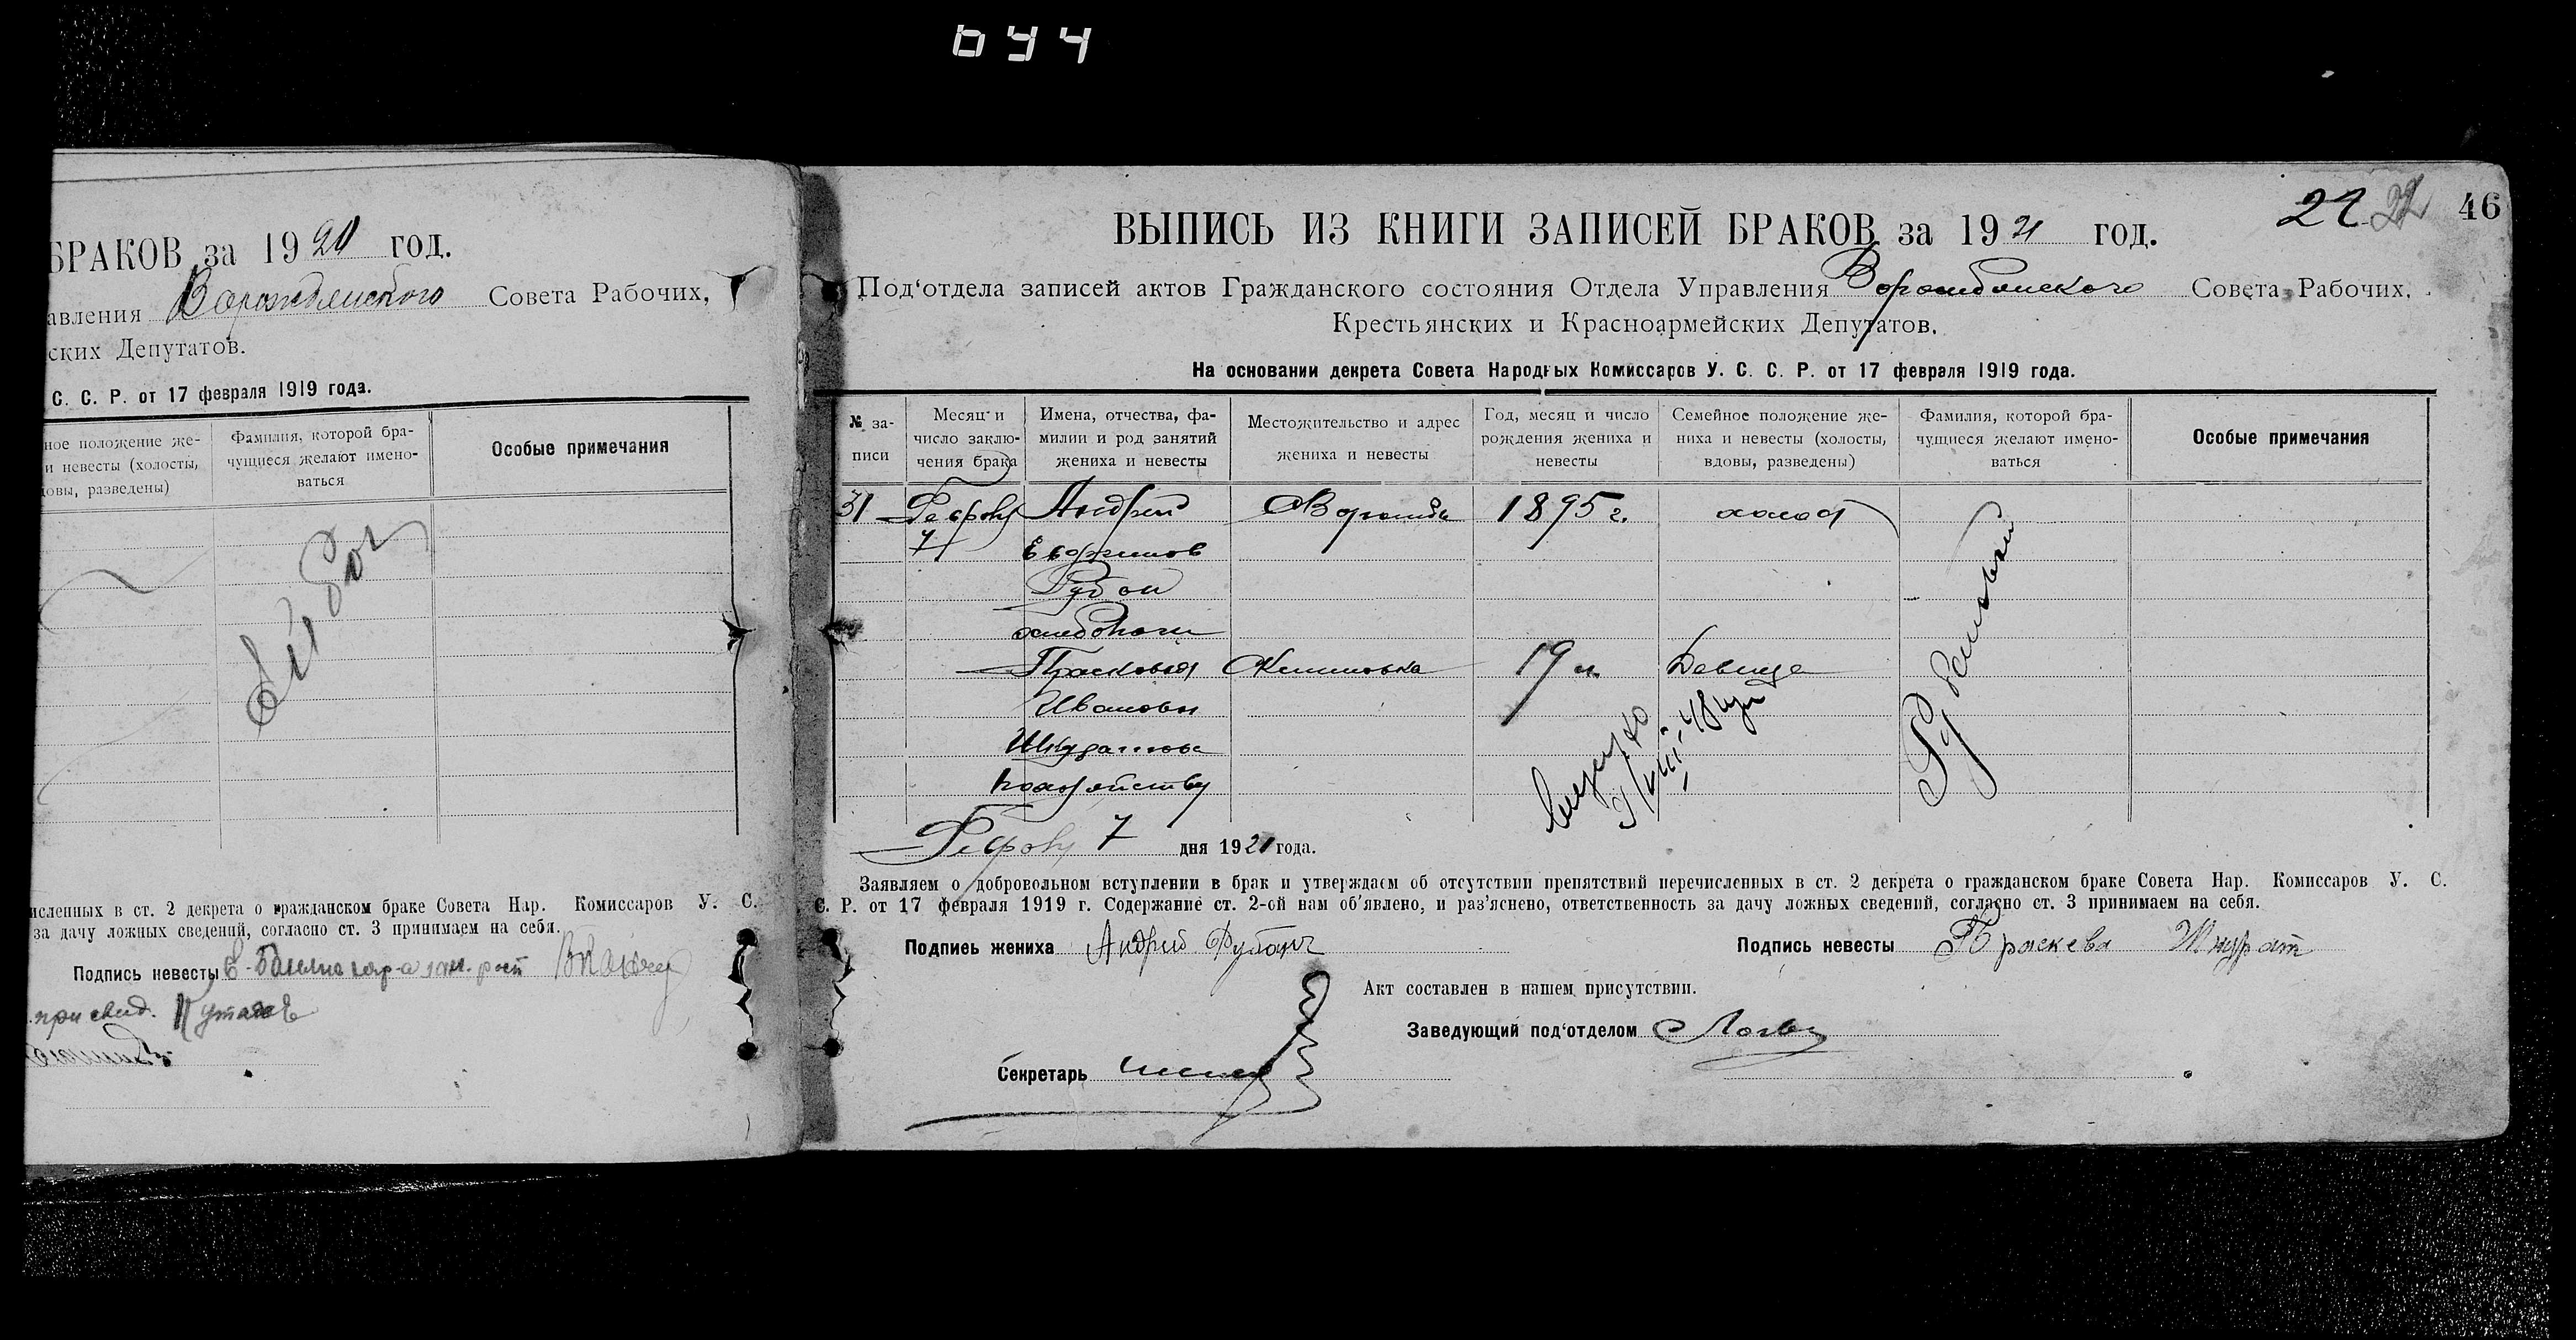 044
БРАКОВ за 1920 год.
авления Ворожбянского Совета Рабочих,
ских Депутатов.
С. С. Р. от 17 февраля 1919 года.
ное положение же-
и невесты (холосты,
довы, разведены)
Фамилия, которой бра-
чущиеся желают имено-
ваться
Особые примечания
исленных в ст. 2 декрета о гражданском браке Совета Нар. Комиссаров У. С.
за дачу ложных сведений, согласно ст. 3 принимаем на себя.
Подпись невесты
22 22 46
ВЫПИСЬ ИЗ КНИГИ ЗАПИСЕЙ БРАКОВ за 1921 год.
Под‘отдела записей актов Гражданского состояния Отдела Управления Ворожбянского Совета Рабочих,
Крестьянских и Красноармейских Депутатов.
На основании декрета Совета Народных Комиссаров У. С. С. Р. от 17 февраля 1919 года.
№ за-
писи
Месяц и
число заклю-
чения брака
Имена, отчества, фа-
милии и род занятий
жениха и невесты
Местожительство и адрес
жениха и невесты
Год, месяц и число
рождения жениха и
невесты
Семейное положение же-
ниха и невесты (холосты,
вдовы, разведены)
Фамилия, которой бра-
чущиеся желают имено-
ваться
Особые примечания
31 Андрей Ворожба 1895 г. холост
7 Евфимов
Рубан
хлебопаш
Прасковья 19 л. Девица
Иванова
Шкуратова
Рубановы
7 дня 1921 года.
Заявляем о добровольном вступлении в брак и утверждаем об отсутствии препятствий перечисленных в ст. 2 декрета о гражданском браке Совета Нар. Комиссаров У. С.
С. Р. от 17 февраля 1919 г. Содержание ст. 2-ой нам об‘явлено, и раз‘яснено, ответственность за дачу ложных сведений, согласно ст. 3 принимаем на себя.
Подпись жениха Андрей Рубан Подпись невесты Праскева Шкурат
Акт составлен в нашем присутствии.
Заведующий под‘отделом
Секретарь